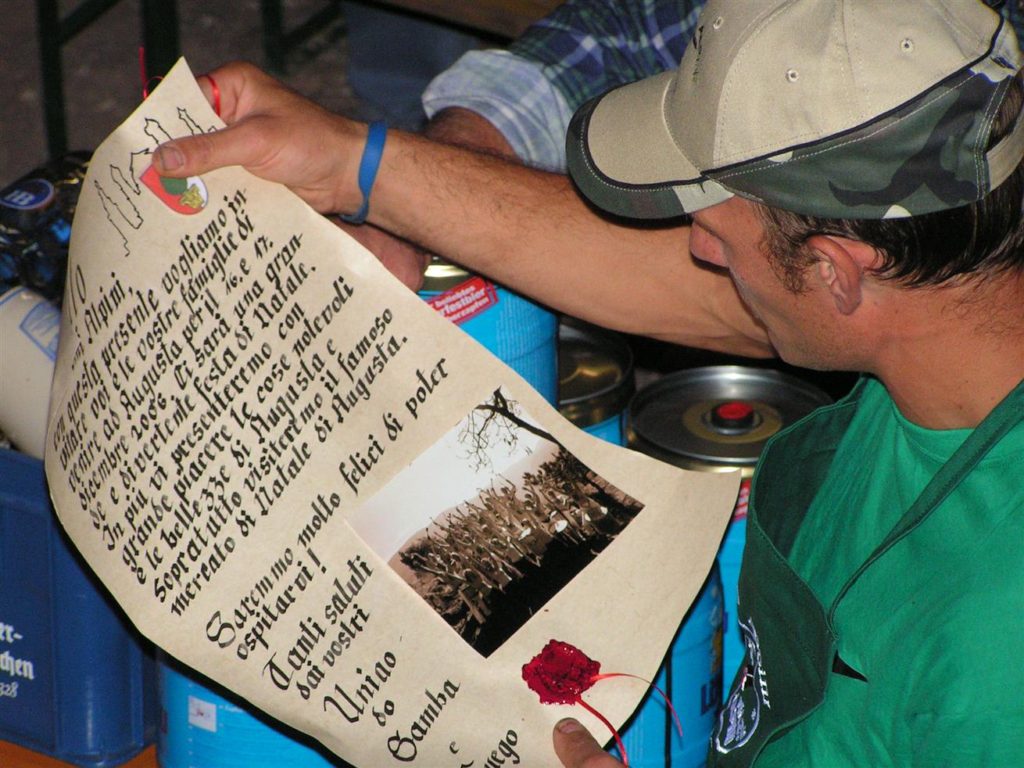 Alpini,
con questa presente vogliamo in-
vitare voi e le vostre famiglie di
venire ad Augusta per il 16. e 17.
dicembre 2006. Ci sarà una gran-
de e divertente festa di Natale.
In più vi presenteremo con
grande piacere le cose notevoli
e le bellezze di Augusta e
sopratutto visiteremo il famoso
mercato di Natale di Augusta.
Saremmo molto felici di poter
ospitarvi!
Tanti saluti
dai vostri
Uniao
do
Samba
e
uego
er-
chen
328
beliebtes
festbier